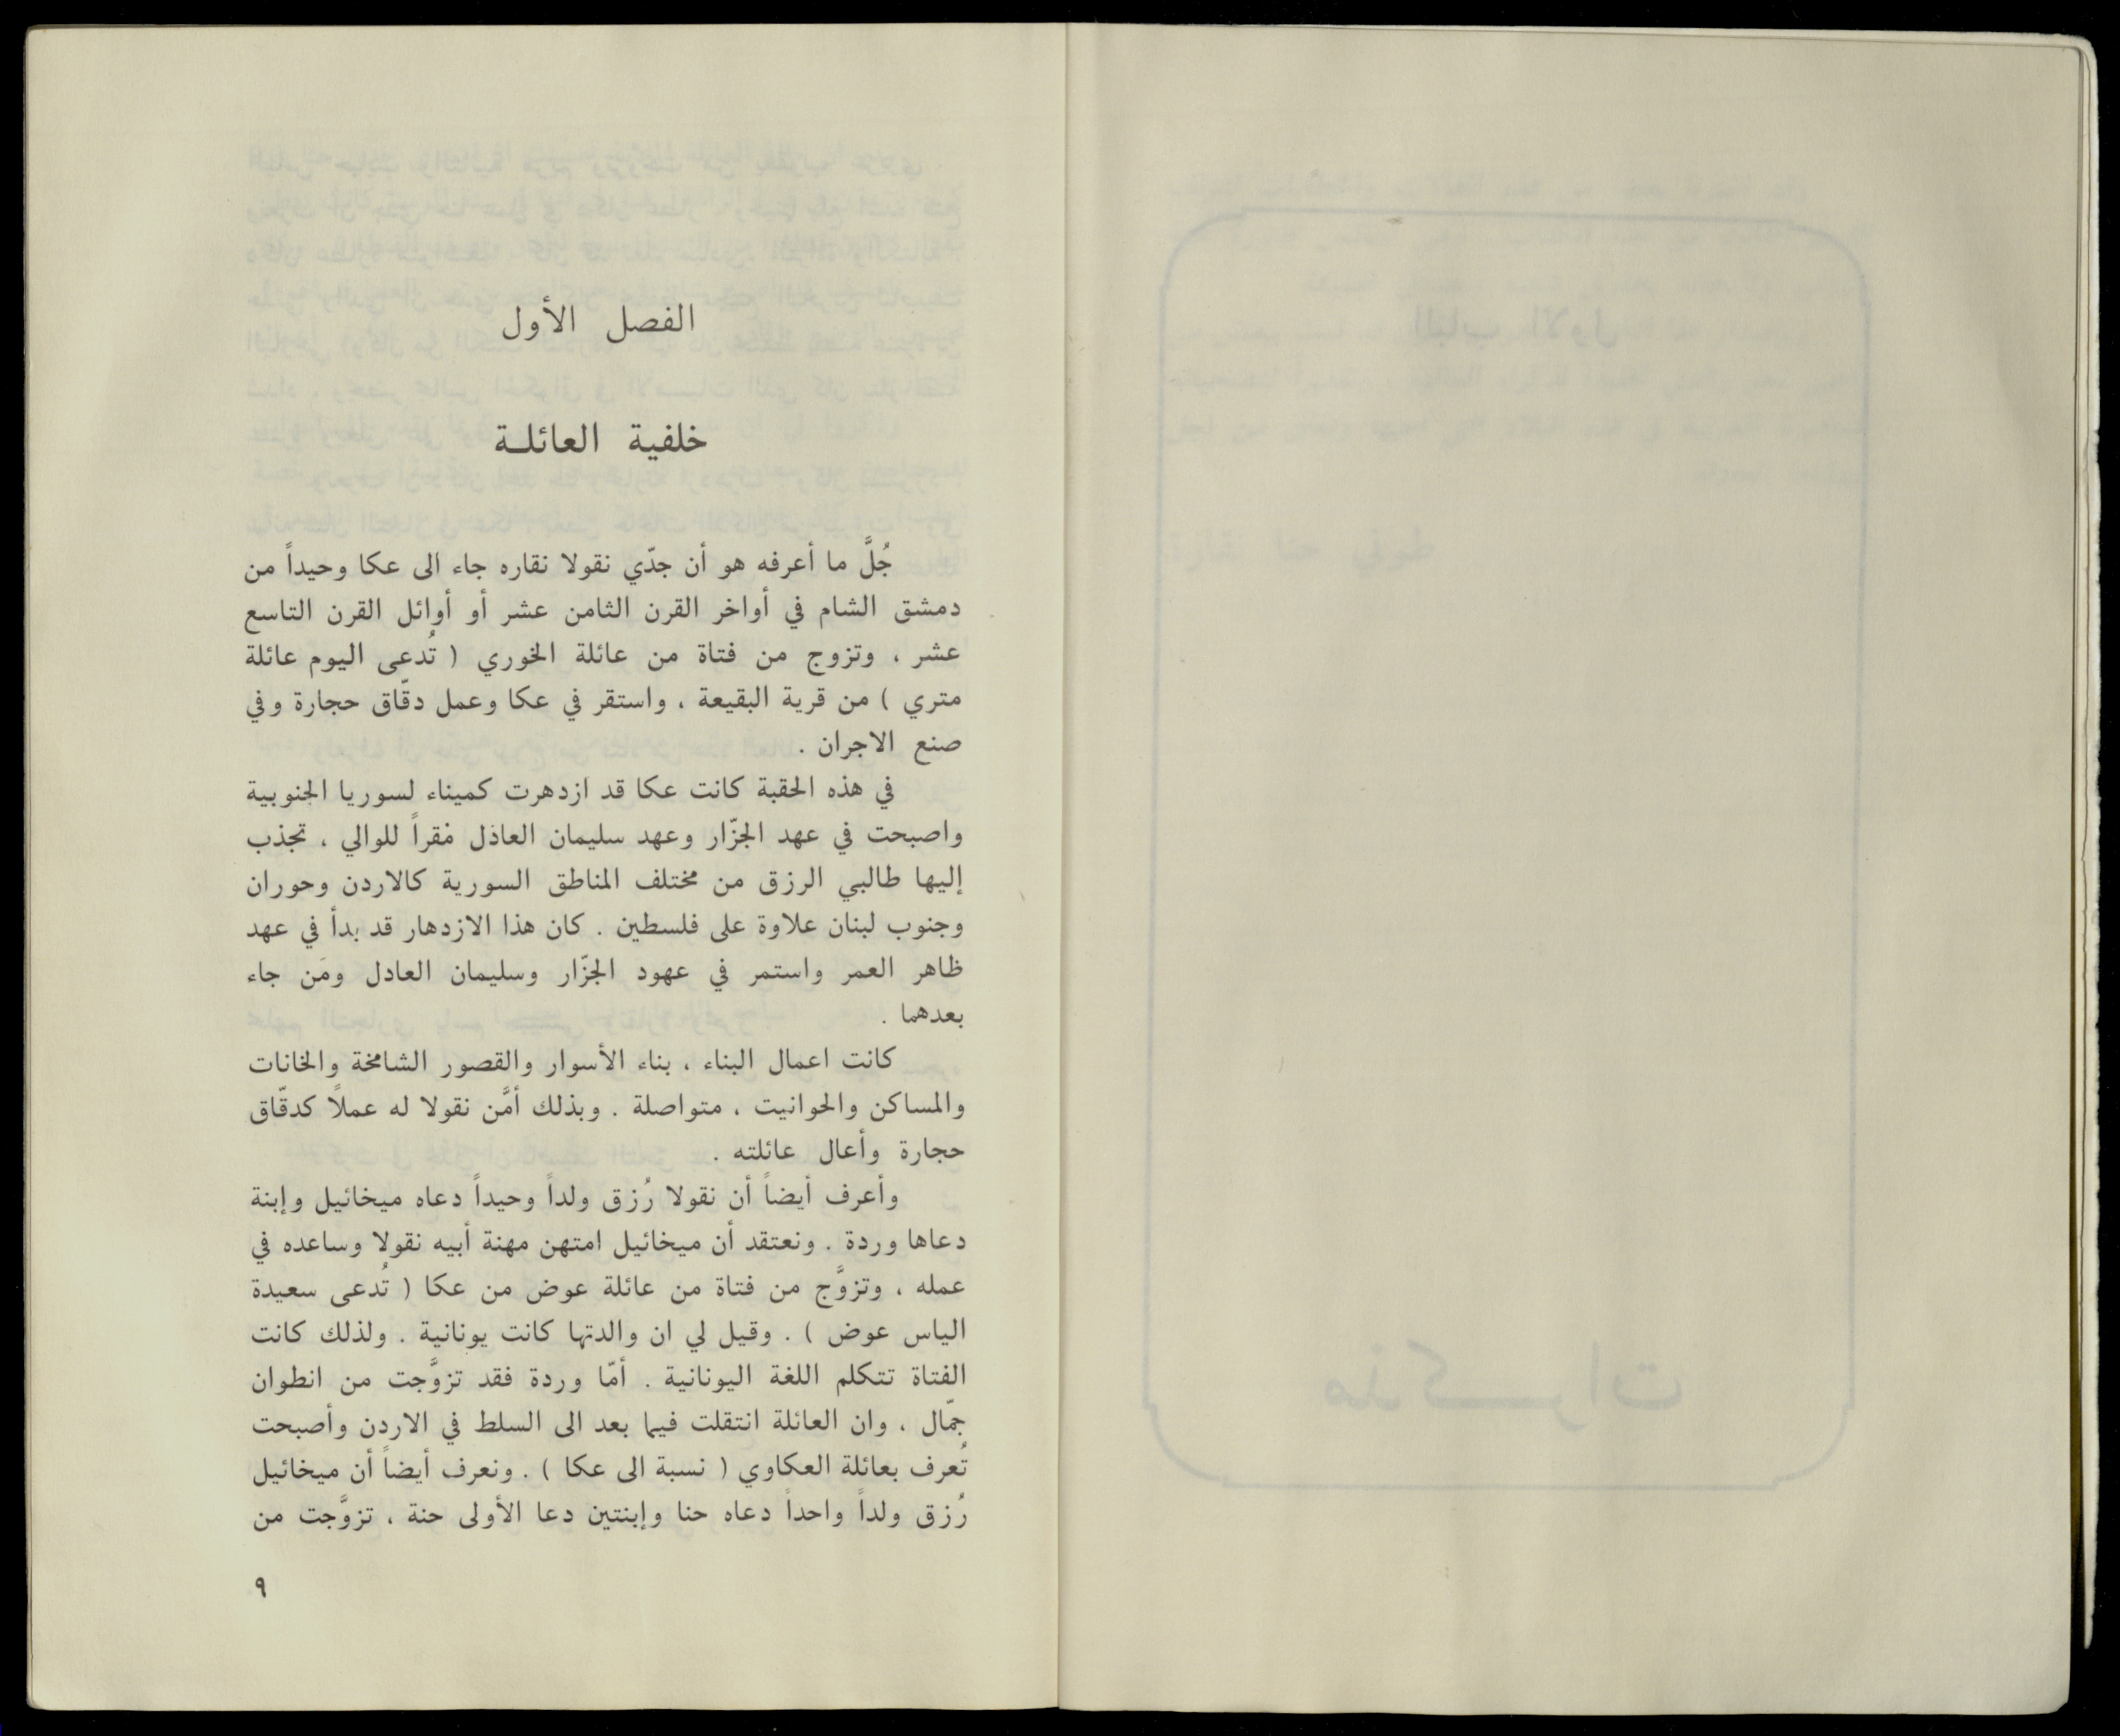 الفصل الأول
خلفية العائلة
جُلَّ ما أعرفه هو أن جدّي نقولا نقاره جاء الى عكا وحيداً من
دمشق الشام في أواخر القرن الثامن عشر أو أوائل القرن التاسع
عشر ، وتزوج من فتاة من عائلة الخوري ( تُدعى اليوم عائلة
متري ) من قرية البقيعة ، واستقر في عكا وعمل دقّاق حجارة وفي
صنع الاجران .
في هذه الحقبة كانت عكا قد ازدهرت كميناء لسوريا الجنوبية
واصبحت في عهد الجزّار وعهد سليمان العاذل مقراً للوالي ، تجذب
إليها طالبي الرزق من مختلف المناطق السورية كالاردن وحوران
وجنوب لبنان علاوة على فلسطين . كان هذا الازدهار قد بدأ في عهد
ظاهر العمر واستمر في عهود الجزّار وسليمان العادل ومَن جاء
بعدهما .
كانت اعمال البناء ، بناء الأسوار والقصور الشامخة والخانات
والمساكن والحوانيت ، متواصلة . وبذلك أمَّن نقولا له عملاً كدقّاق
حجارة وأعال عائلته .
وأعرف أيضاً أن نقولا رُزق ولداً وحيداً دعاه ميخائيل وإبنة
دعاها وردة . ونعتقد أن ميخائيل امتهن مهنة أبيه نقولا وساعده في
عمله ، وتزوَّج من فتاة من عائلة عوض من عكا ( تُدعى سعيدة
الياس عوض ) . وقيل لي ان والدتها كانت يونانية . ولذلك كانت
الفتاة تتكلم اللغة اليونانية . أمّا وردة فقد تزوَّجت من انطوان
جمّال ، وان العائلة انتقلت فيما بعد الى السلط في الاردن وأصبحت
تُعرف بعائلة العكاوي ( نسبة الى عكا ) . ونعرف أيضاً أن ميخائيل
رُزق ولداً واحداً دعاه حنا وإبنتين دعا الأولى حنة ، تزوَّجت من
٩